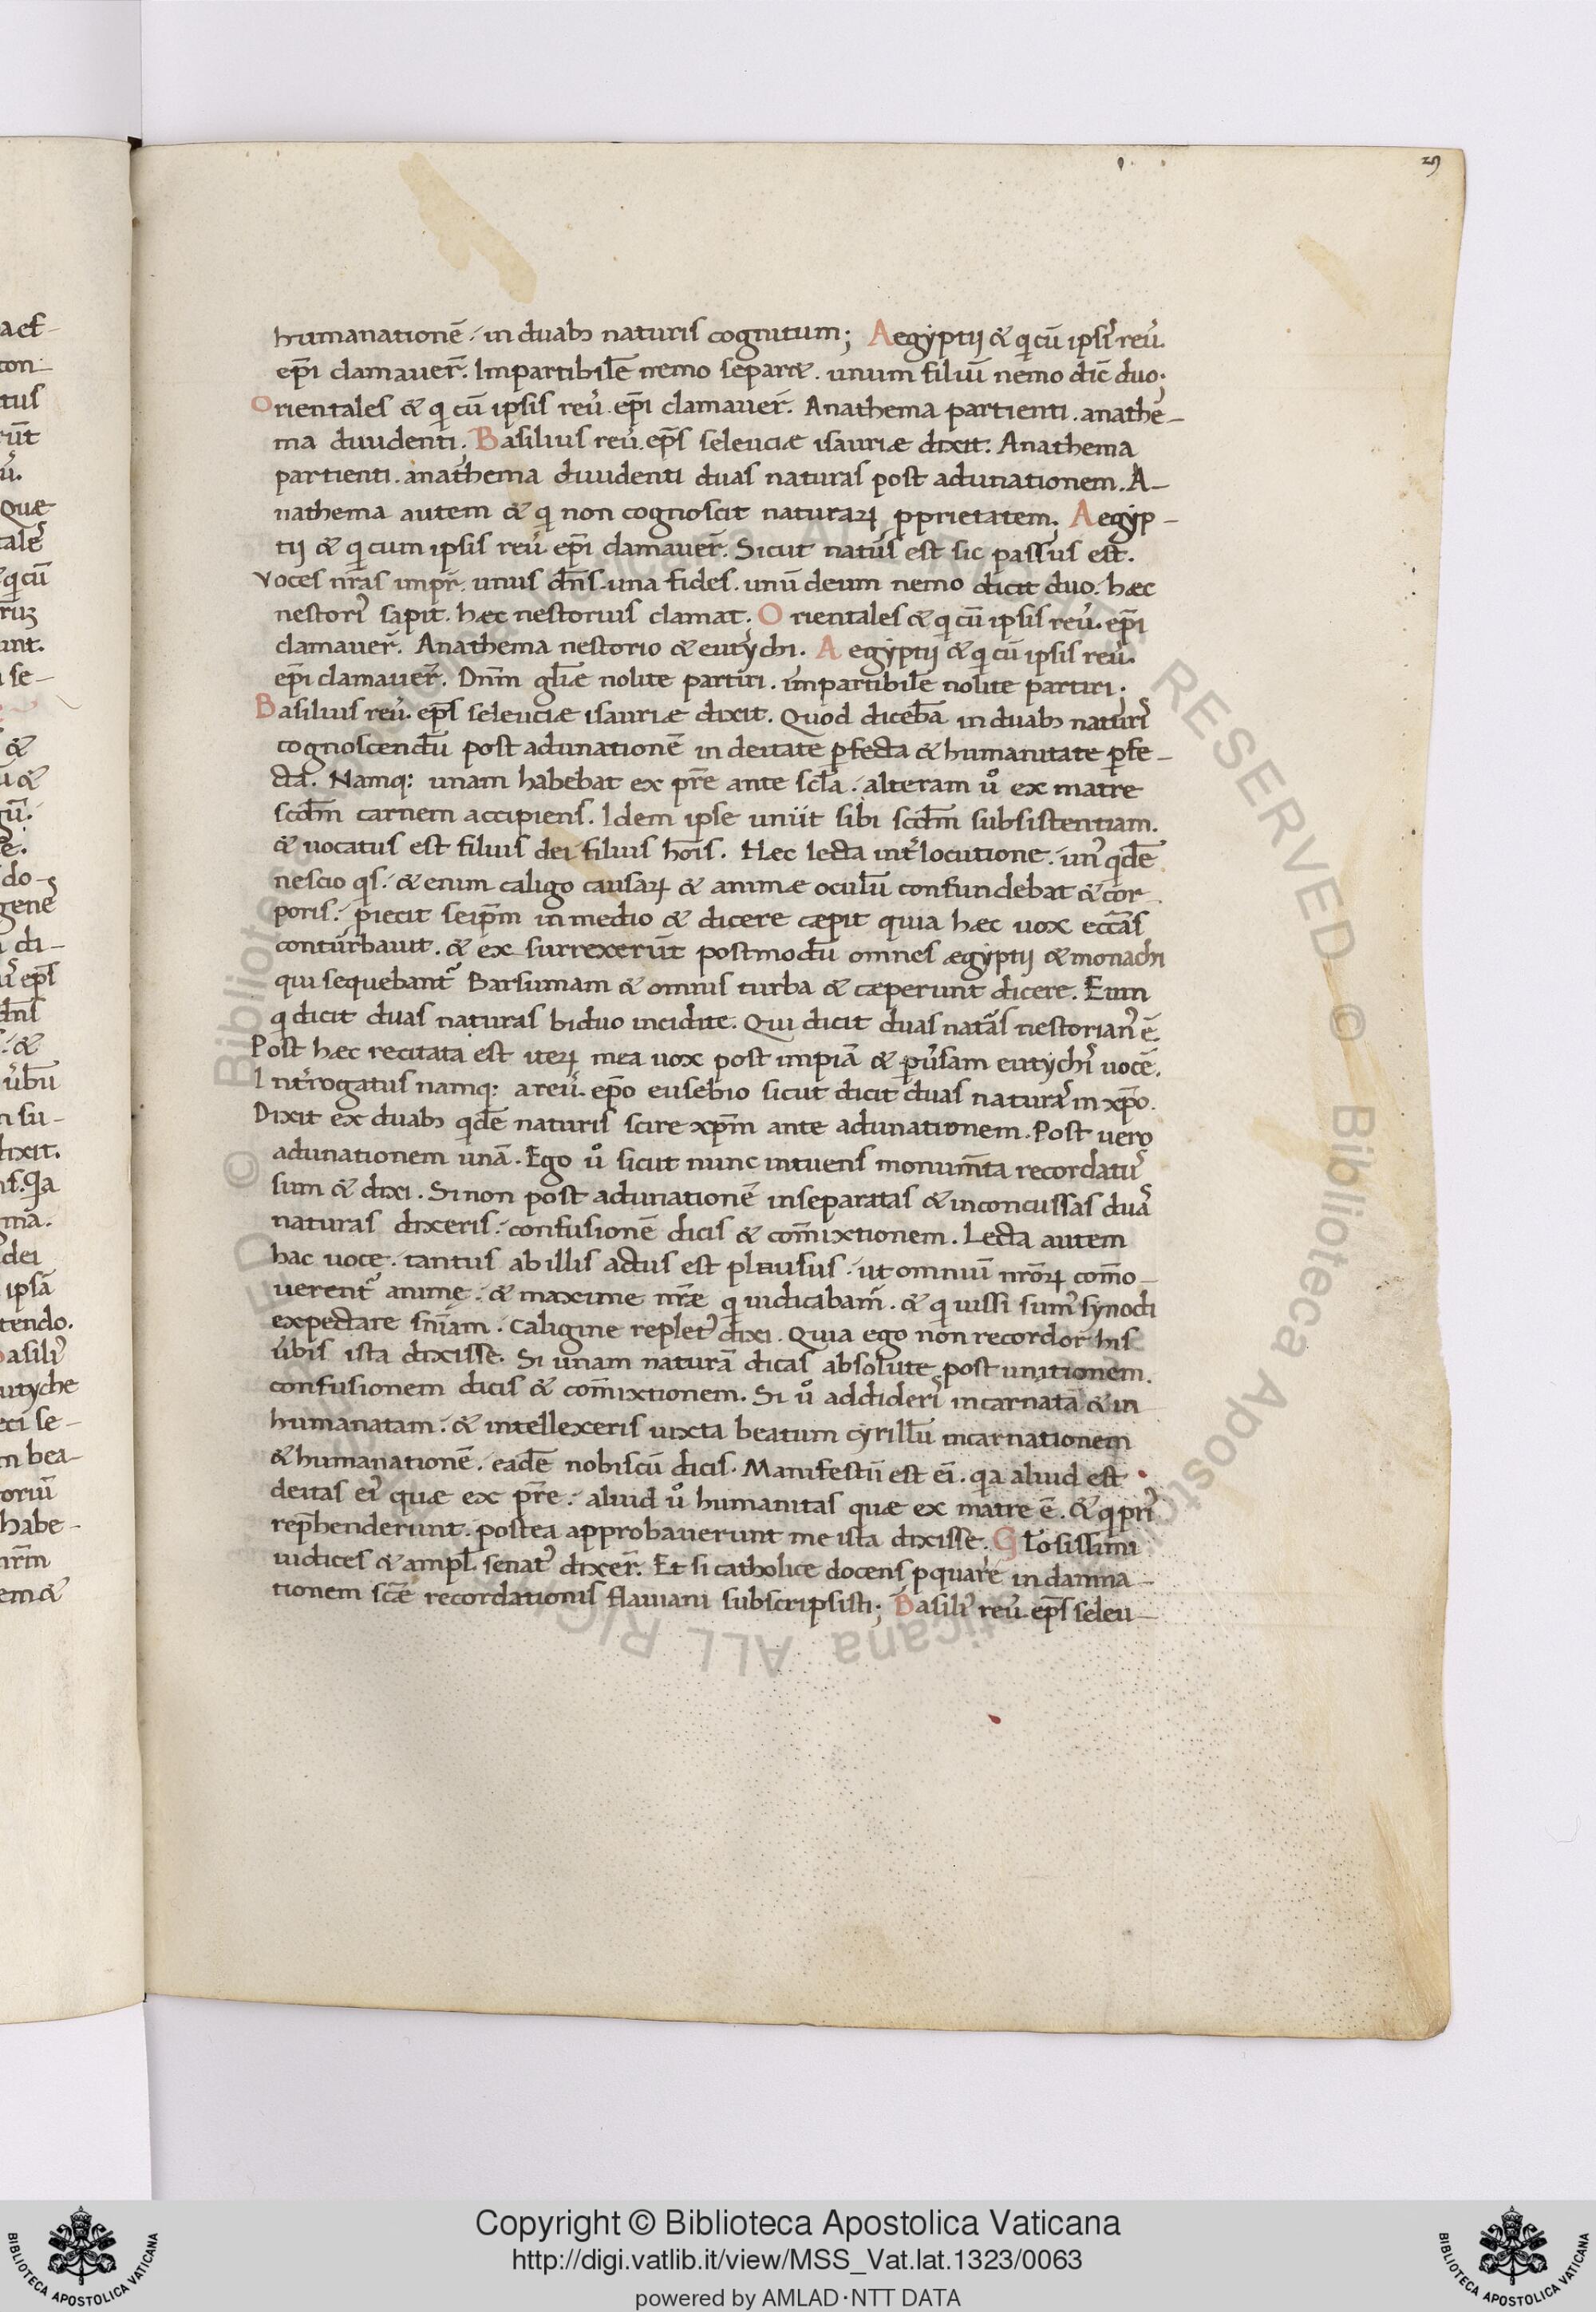 humanationē. in duabꝫ naturis cognitum; Aegyptij & q̇ cū ipsis reu.
ep̄i clamauer̄. Impartibilē nemo separæ. unum filiū nemo dic̄ duo.
Orientales & q̇ cū ipsis reu. ep̄i clamauer̄. Anathema partienti. anathe-
ma diuidenti. Basilius reu. ep̄s seleuciæ isauriæ dixit. Anathema
partienti. anathema diuidenti duas naturas post adunationem. A-
nathema autem & q̇ non cognoscit naturaꝝ ꝓprietatem. Aegyp-
tij & q̇ cum ipsis reu. ep̄i clamauer̄. Sicut natus est sic passus est.
voces nr̄as impr̄. unus dn̄s. una fides. unū deum nemo dicit duo. hæc
nestori' sapit. hæc nestorius clamat. Orientales & q̇ cū ipsis reu. ep̄i
clamauer̄. Anathema nestorio & eutychi. Aegyptij & q̇ cū ipsis reu.
ep̄i clamauer̄. Dn̄m gl̄iæ nolite partiri. impartibile nolite partiri;
Basilius reu. ep̄s seleuciæ isauriæ dixit. Quod dicebā in duabꝫ naturis
cognoscendū post adunationē in deitate ꝑfecta & humanitate ꝑfe-
cta. Namq: unam habebat ex pr̄e ante scl̄a. alteram ů ex matre
scd̄m carnem accipiens. Idem ipse uniit sibi scd̄m subsistentiam.
& uocatus est filius dei filius hōis. Hec lecta int̄locutione. un' qdē
nescio qs. & enim caligo causaꝝ & animæ oculū confundebat & cor
poris. p̄iecit seip̄m in medio & dicere cæpit quia hæc uox ecc̄as
conturbauit. & ex surrexerūt postmodū omnes ægyptij & monachi
qui sequebant' Barsumam & omnis turba & cæperunt dicere. Eum
q̇ dicit duas naturas biduo incidite. Qui dicit duas nat̄as nestorian' ē.
Post hæc recitata est iteꝝ mea uox post impiā & ꝑu'sam eutychis uocē.
Int̄rogatus namq: a reu. ep̄o eusebio sicut dicit duas naturas in xp̄o.
Dixit ex duabꝫ qdē naturis scire xp̄m ante adunationem. Post uero
adunationem unā. Ego ů sicut nunc intuens monum̄ta recordatus
sum & dixi. Si non post adunationē inseparatas & inconcussas duas
naturas dixeris. confusionē dicis & com̄ixtionem. Lecta autem
hac uoce. tantus ab illis actus est plausus. ut omniū nrōꝝ com̄o-
uerent' animę. & maxime nr̄æ q̇ iudicabam'. & q̇ iussi sum' synodi
expectare sn̄iam. Caligine replet' dixi. Quia ego non recordor his
u'bis ista dixisse. Si unam naturā dicas absolute post unitionem.
confusionem dicis & com̄ixtionem. Si ů addideris incarnatā & in
humanatam. & intellexeris iuxta beatum cyrillū incarnationem
& humanationē. eadē nobiscū dicis. Manifestū est eī. qa aliud est
deitas ei' quæ ex pr̄e. aliud ů humanitas quæ ex matre ē. & q̇ pri'
rep̄henderunt. postea approbauerunt me ista dixisse. Gl̄osissimi
iudices & ampl. senat' dixer̄. Et si catholice docens ꝑ quare in damna-
tionem sc̄æ recordationis flauiani subscripsisti; Basili' reu. ep̄s seleu-
Copyright © Biblioteca Apostolica Vaticana
http://digi.vatlib.it/view/MSS_Vat.lat.1323/0063
powered by AMLAD·NTT DATA